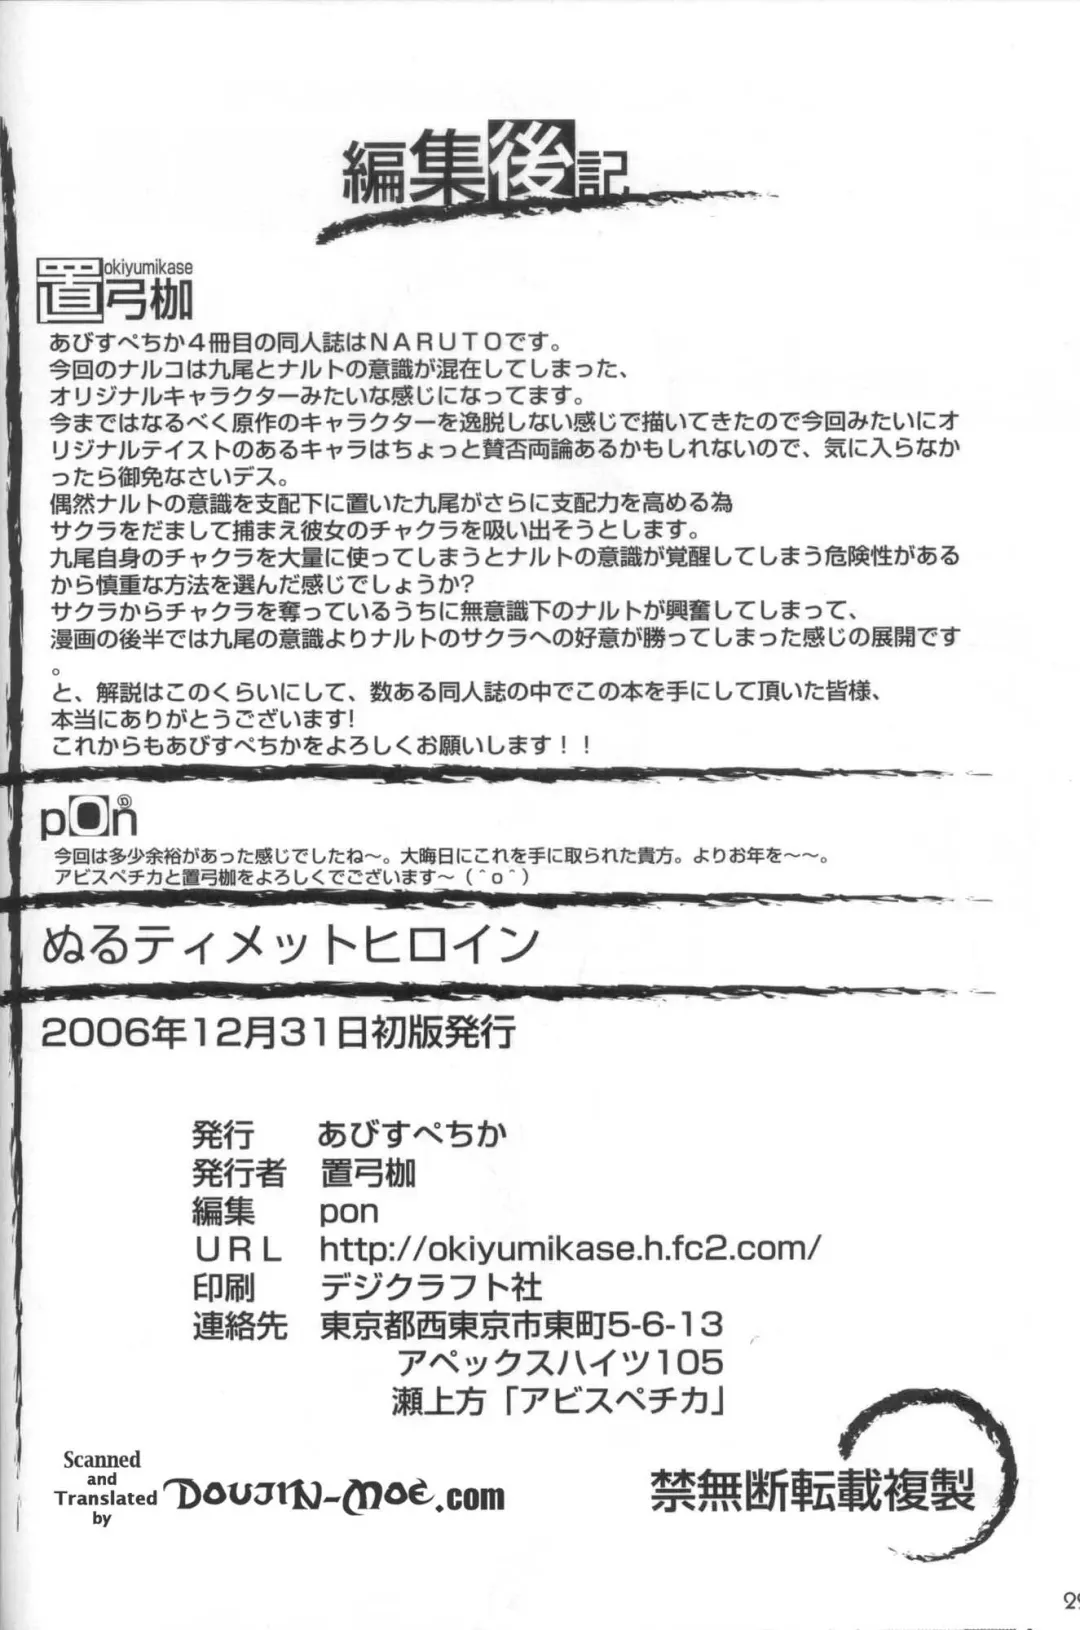 編集後記
okiyumikase
置弓枷
あびすぺちか４冊目の同人誌はＮＡＲＵＴＯです。
今回のナルコは九尾とナルトの意識が混在してしまった、
オリジナルキャラクターみたいな感じになってます。
今まではなるべく原作のキャラクターを逸脱しない感じで描いてきたので今回みたいにオ
リジナルテイストのあるキャラはちょっと賛否両論あるかもしれないので、気に入らなか
ったら御免なさいデス。
偶然ナルトの意識を支配下に置いた九尾がさらに支配力を高める為
サクラをだまして捕まえ彼女のチャクラを吸い出そうとします。
九尾自身のチャクラを大量に使ってしまうとナルトの意識が覚醒してしまう危険性がある
から慎重な方法を選んだ感じでしょうか?
サクラからチャクラを奪っているうちに無意識下のナルトが興奮してしまって、
漫画の後半では九尾の意識よりナルトのサクラへの好意が勝ってしまった感じの展開です
。
と、解説はこのくらいにして、数ある同人誌の中でこの本を手にして頂いた皆様、
本当にありがとうございます!
これからもあびすぺちかをよろしくお願いします！！
pon
今回は多少余裕があった感じでしたね～。大晦日にこれを手に取られた貴方。よりお年を～～。
アビスペチカと置弓枷をよろしくでございます～（＾ｏ＾）
ぬるティメットヒロイン
2006年12月31日初版発行
発行 あびすぺちか
発行者 置弓枷
編集 pon
ＵＲＬ http://okiyumikase.h.fc2.com/
印刷 デジクラフト社
連絡先 東京都西東京市東町5-6-13
アペックスハイツ105
瀬上方「アビスペチカ」
Scanned
and
Translated
by
DOUJIN-MOE.com
禁無断転載複製
29